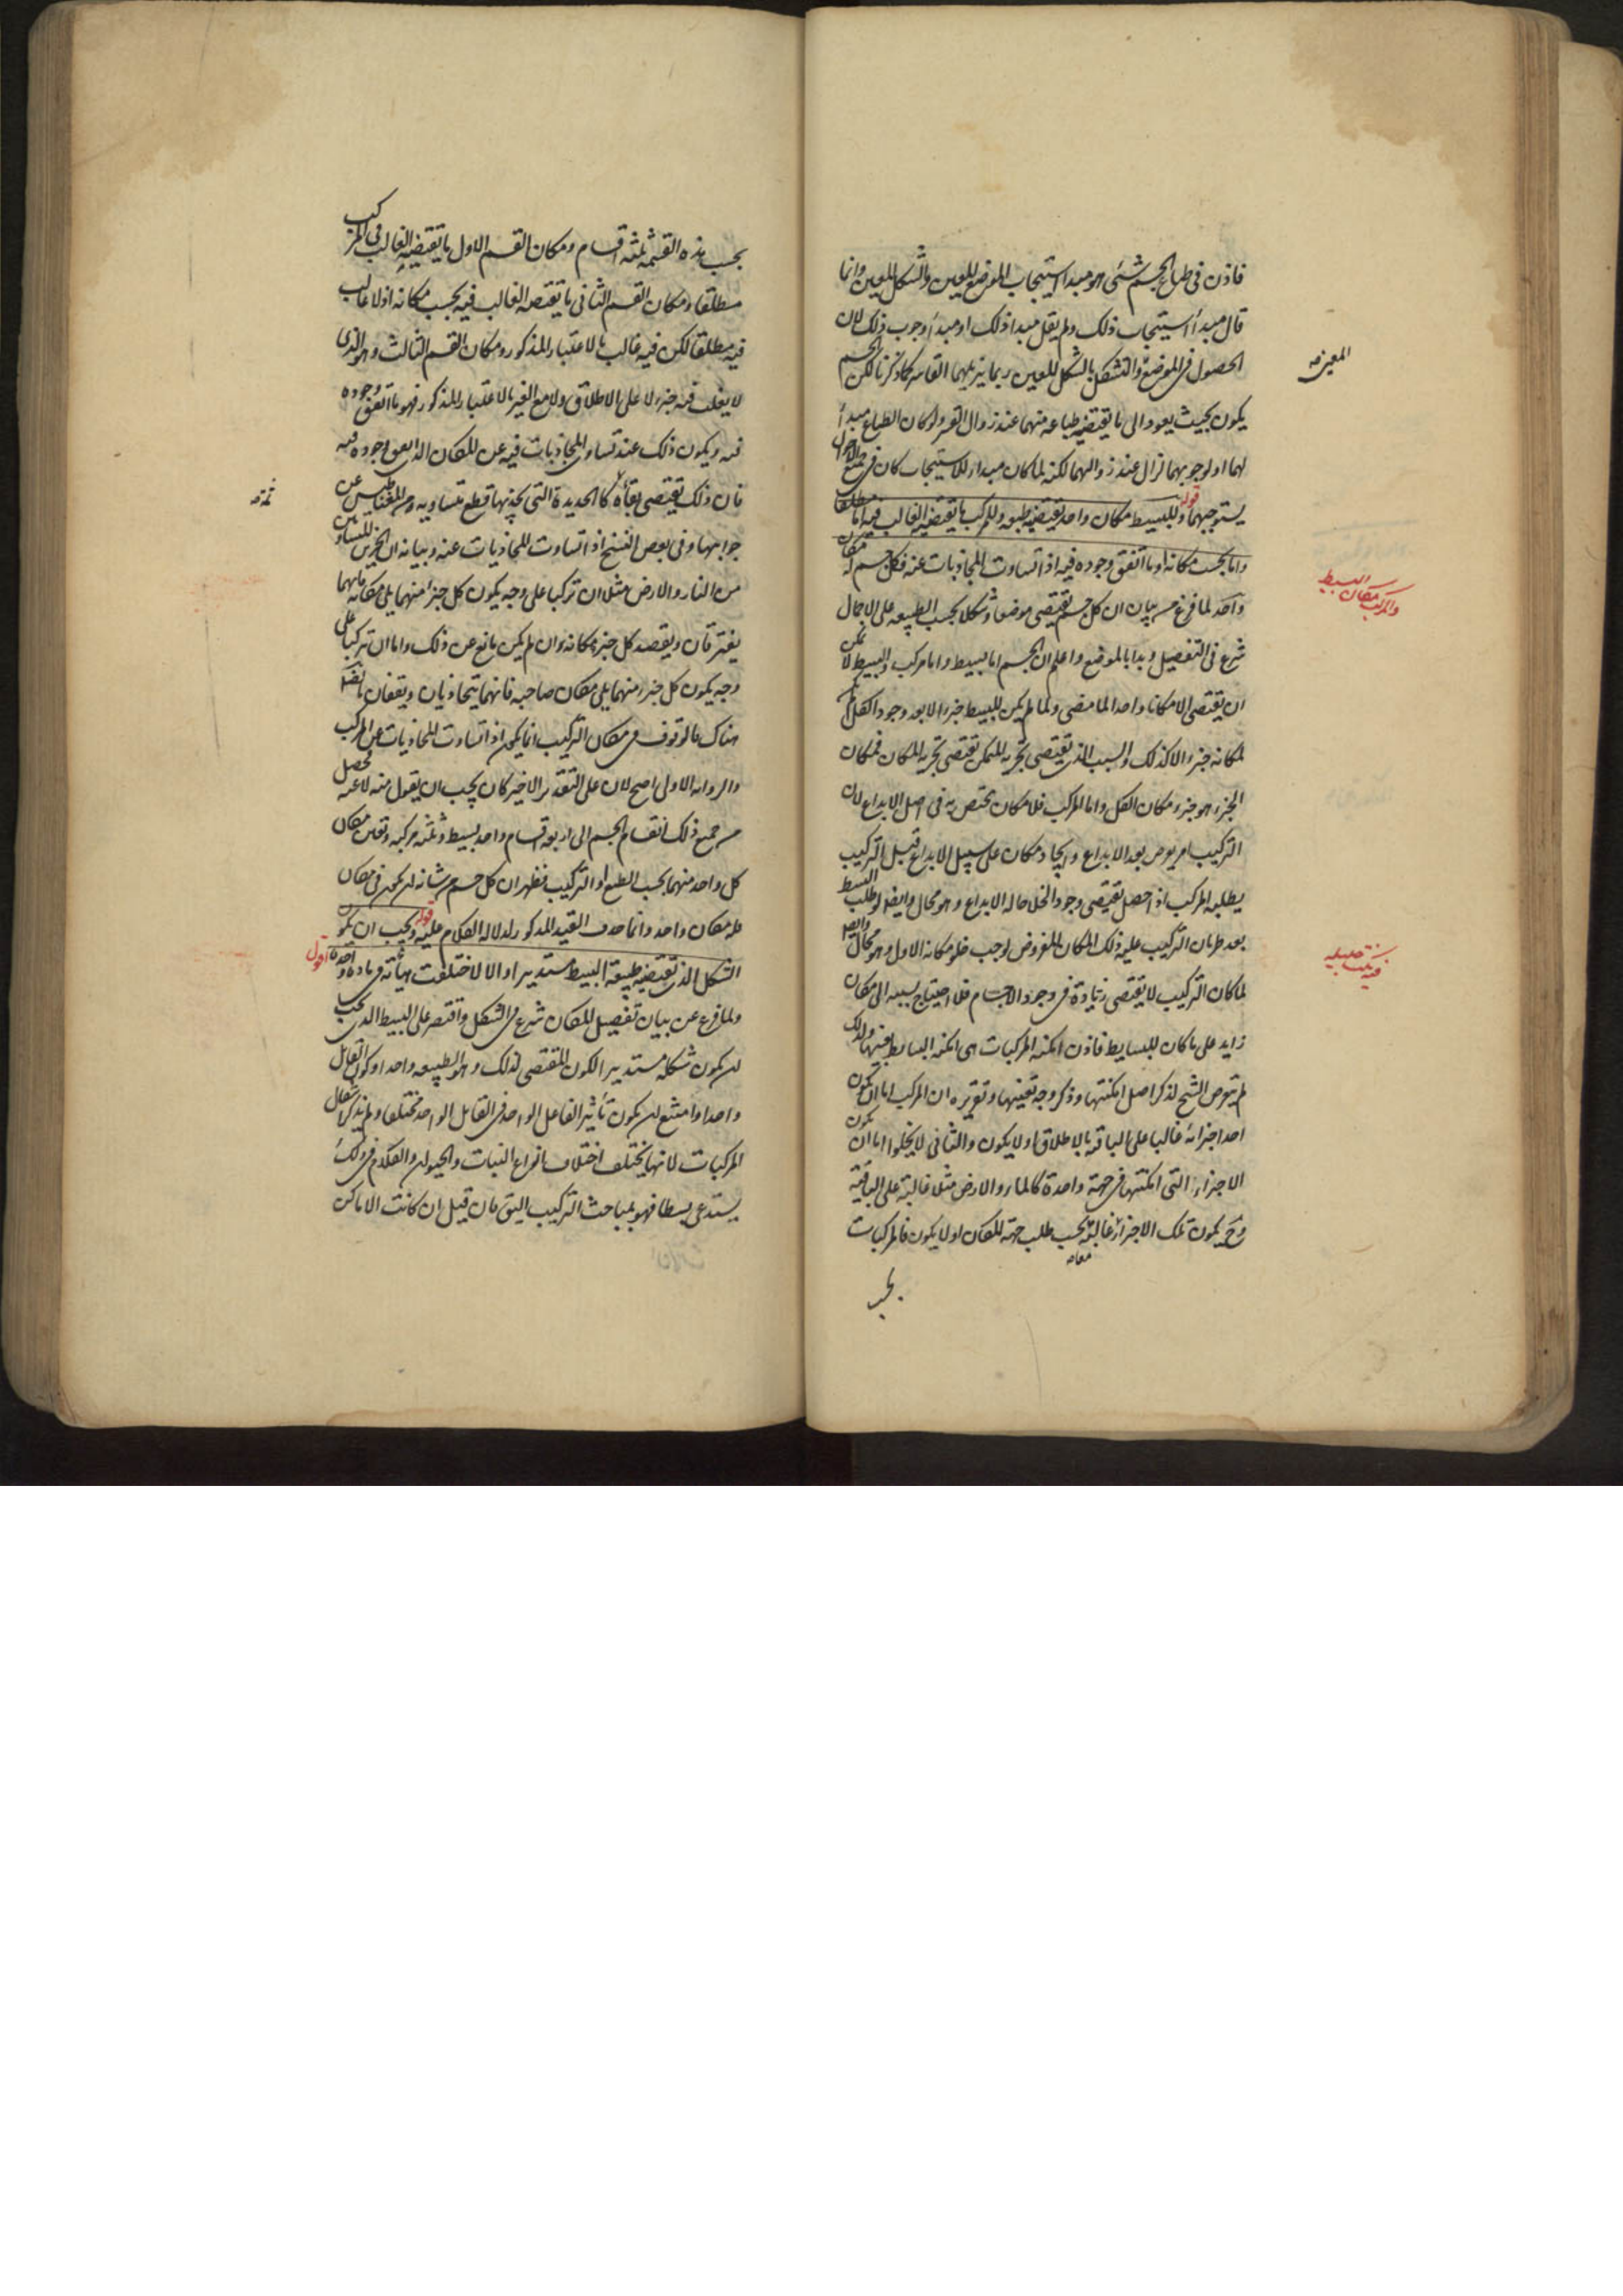 فاذن فى طباع الجسم شئ هو مبدا استيجاب الموضع المعين والشكل المعين وانما
قال مبدأ استيجاب ذلك ولم يقل مبدا ذلك او مبدأ وجوب ذلك لان
الحصول فى الموضع والتشكل بالشكل المعين ربما يزيلهما القاسر كما ذكرنا لكن الجسم
المعين صه
يكون بحيث يعود الى ما يقتضيه طباعه منهما عند زوال القسر ولو كان الطباع مبدأ
لهما او لوجوبهما لزال عند زوالهما لكنه لما كان مبدا للاستيجاب كان فى جميع الاحوال
يستوجبهما قوله وللبسيط مكان واحد يقتضيه طبعه وللمركب ما يقتضيه الغالب فيه اما مطلقا
واما بحسب مكانه او ما اتفق وجوده فيه اذا تساوت المجاذبات عنه فكل جسم له مكان
واحد لما فرغ من بيان ان كل جسم يقتضى موضعا وشكلا بحسب الطبيعه على الاجمال
البسيط
والمركب مكان
شرع فى التفصيل وبدا بالموضع واعلم ان الجسم اما بسيط واما مركب والبسيط لا يمكن
ان يقتضى الا مكانا واحدا لما مضى ولما لم يكن للبسيط جزء الا بعد وجود الكل لم يكن
لمكانه جزء الا كذلك والسبب الذى يقتضى تجزيه المتمكن يقتضى تجزيه المكان فمكان
الجزء هو جزء مكان الكل واما المركب فلا مكان يختص به فى اصل الابداع لان
التركيب امر يعرض بعد الابداع وايجاد مكان على سبيل الابداع قبل التركيب
يطلبه المركب اذا حصل يقتضى وجود الخلا حاله الابداع وهو محال وايضا لو طلب البسيط
بعد طريان التركيب عليه ذلك المكان المفروض لوجب خلو مكانه الاول وهو محال وايضا
لما كان التركيب لا يقتضى زيادة فى وجود الاجسام فلا احتياج بسببه الى مكان
زايد على ما كان للبسايط فاذن امكنه المركبات هى امكنه البسايط بعينها ولذلك
لم يتعرض الشيخ لذكر اصل امكنتها وذكر وجه تعينها وتقريره ان المركب اما ان يكون
احد اجزائه غالبا على الباقيه بالاطلاق او لا يكون والثانى لا يخلوا اما ان يكون
الاجزاء التى امكنتها فى جهة واحدة كالماء والارض مثلا غالبة على الباقية
وح يكون تلك الاجزاء غالبة بحسب طلب جهة المكان او لا يكون فالمركبات
معا صه
بحسب
بحسب هذه القسمة ثلثة اقسام ومكان القسم الاول ما يقتضيه الغالب فى المركب
مطلقا ومكان القسم الثانى ما يقتضيه الغالب فيه بحسب مكانه اذ لا غالب
فيه مطلقا لكن فيه غالب بالاعتبار المذكور ومكان القسم الثالث وهو الذى
لا يغلب فيه جزء لا على الاطلاق ولا مع الغير بالاعتبار المذكور فهو ما اتفق وجوده
فيه ويكون ذلك عند تساوى المجاذبات فيه عن المكان الذى اتفق وجوده فيه
فان ذلك يقتضى بقاءه كالحديدة التى يجذبها قطع متساويه من المغناطيس عن
ثمه صه
جوانبها وفى بعض النسخ اذا تساوت المجاذبات عنه وبيانه ان الجزءين المتساويين
من النار والارض مثلا ان تركبا على وجه يكون كل جزء منهما يلى مكانه فانهما
يفترقان ويقصد كل جزء مكانه ان لم يكن مانع عن ذلك واما ان تركبا على
وجه يكون كل جزء منهما يلى مكان صاحبه فانهما يتجاذبان ويقفان بالضرورة
هناك فالوقوف فى مكان التركيب انما يكون اذا تساوت المجاذبات عن المركب
والروايه الاولى اصح لان على التقدير الاخير كان يجب ان يقول منه لا عنه فحصل
من جميع ذلك انقسام الجسم الى اربعه اقسام واحد بسيط وثلثه مركبه وتعين مكان
كل واحد منهما بحسب الطبع او التركيب فظهر ان كل جسم من شانه ان يكون فى مكان
فله مكان واحد وانما حذف القيد المذكور لدلاله الكلام عليه قوله ويجب ان يكون
الشكل الذى يقتضيه طبيعة البسيط مستديرا والا لاختلفت هيأته فى مادة واحدة اقول
ولما فرغ عن بيان تفصيل المكان شرع فى الشكل واقتصر على البسيط الذى يجب
ان يكون شكله مستديرا لكون المقتضى لذلك وهو الطبيعه واحدا وكون القابل
واحدا وامتنع ان يكون تأثير الفاعل الواحد فى القابل الواحد مختلفا ولم يذكر اشكال
المركبات لانها يختلف اختلاف انواع النبات والحيوان والكلام فى ذلك
يستدعى بسطا فهو بمباحث التركيب اليق فان قيل ان كانت الاماكن